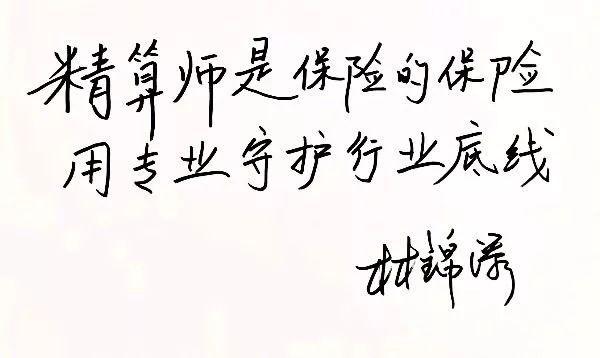 精算师是保险的保险
用专业守护行业底线
林锦添